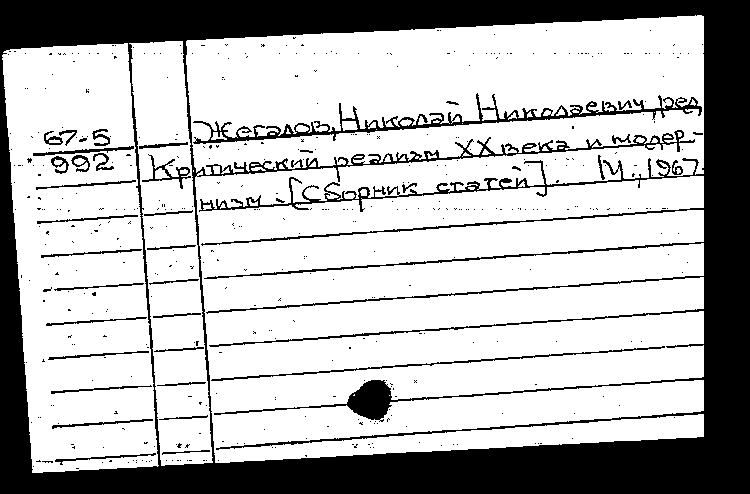 Жегалов, Николай Николаевич, ред.
67-5
992
Критический реализм XX века и модер-
низм. [Сборник статей]. М., 1967.